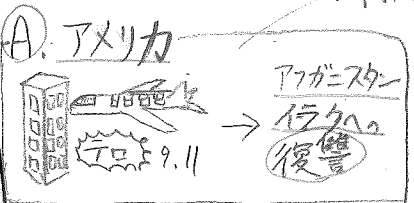 A. アメリカ
テロ 9.11
→
アフガニスタン
イラクへの
復讐